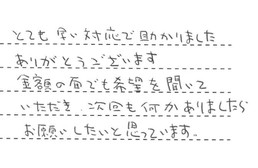 とても早い対応で助かりました
ありがとうございます
金額の面でも希望を聞いて
いただき、次回も何かありましたら
お願いしたいと思っています。